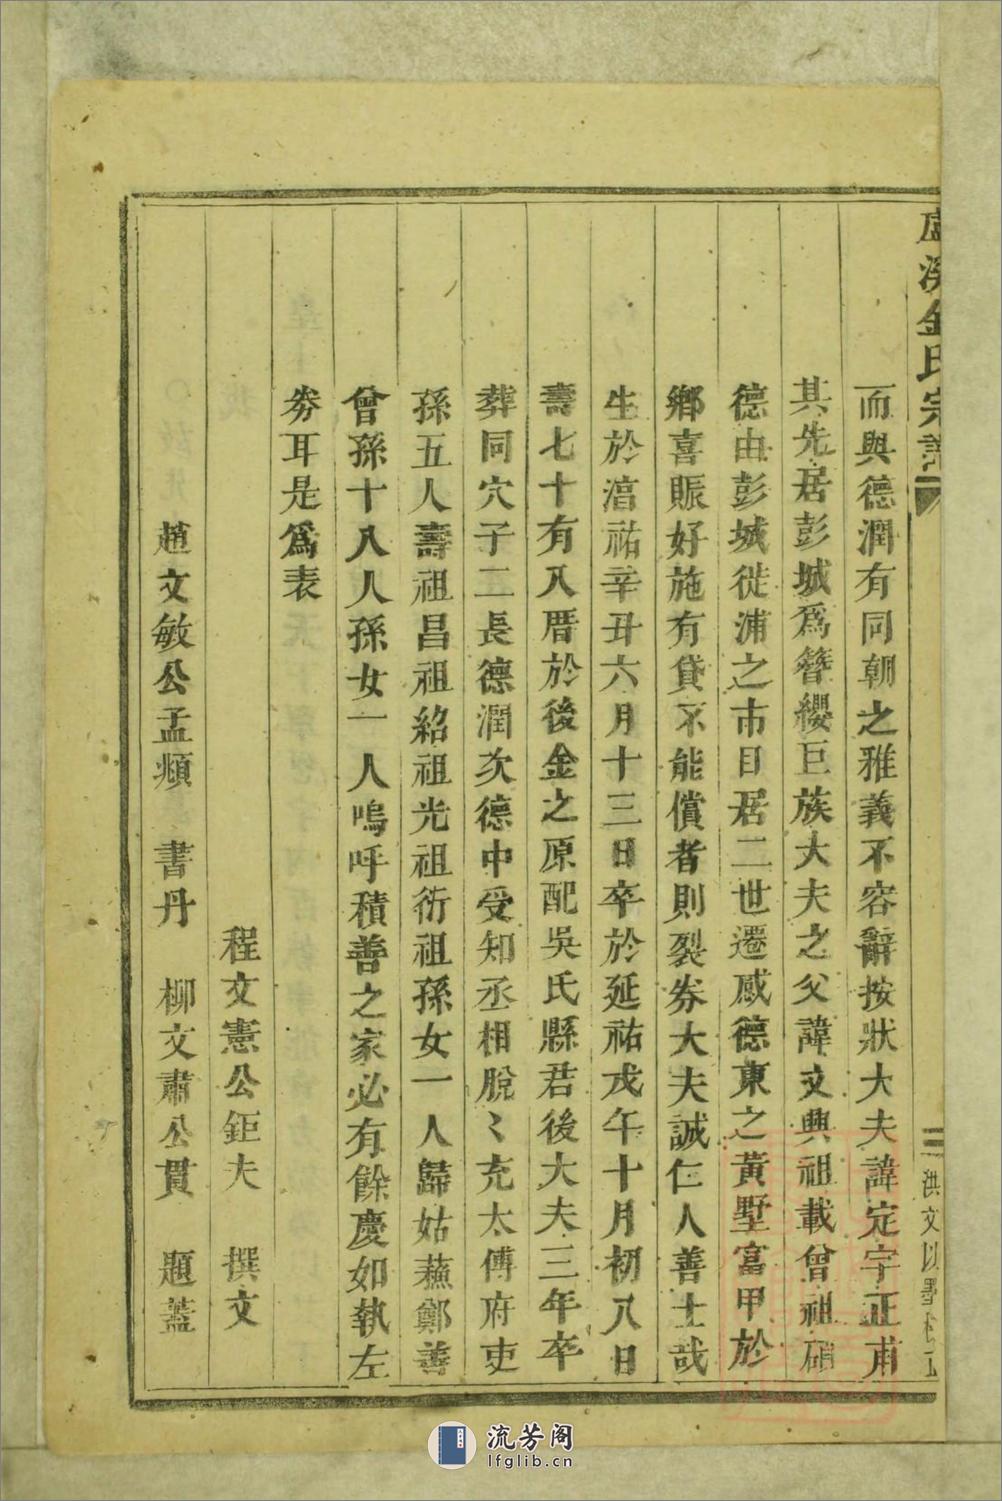 溪金氏宗譜
二
洪文以墨
而與德潤有同朝之雅義不容辭按狀大夫諱定字正甫
其先居彭城爲簪纓巨族大夫之父諱文興祖載曾祖碩
德由彭城徙浦之市目居二世遷感德東之黃墅富甲於
鄉喜賑好施有貸不能償者則裂券大夫誠仁人善士哉
生於淯祐辛丑六月十三日卒於延祐戊午十月初八日
壽七十有八厝於後金之原配吳氏縣君後大夫三年卒
葬同穴子二長德潤次德中受知丞相脫〻充太傅府吏
孫五人壽祖昌祖紹祖光祖衍祖孫女一人歸姑蘓鄭善
曾孫十八人孫女一人嗚呼積善之家必有餘慶如執左
券耳是爲表
程文憲公鉅夫 撰文
趙文敏公孟頫 書丹 柳文肅公貫 題蓋
流芳阁
lfglib.cn